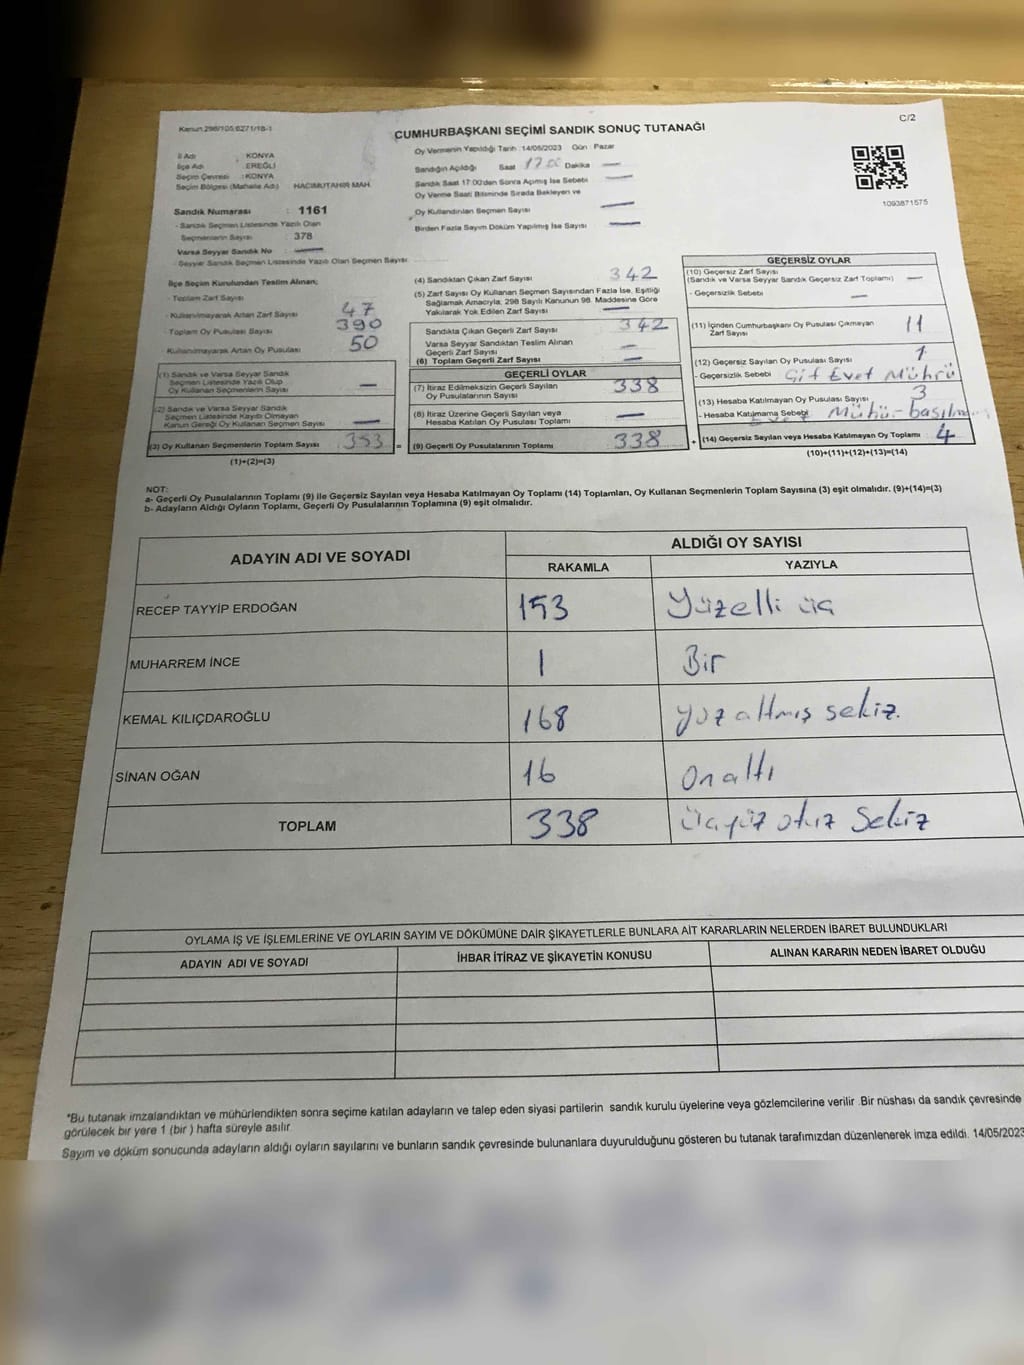 Kanun 298/105,6271/18-1
C/2
CUMHURBAŞKANI SEÇİMİ SANDIK SONUÇ TUTANAĞI
İl Adı : KONYA
İlçe Adı : EREĞLİ
Seçim Çevresi : KONYA
Seçim Bölgesi (Mahalle Adı) HACIMUTAHİR MAH.
Sandık Numarası : 1161
- Sandık Seçmen Listesinde Yazılı Olan
Seçmenlerin Sayısı : 378
Varsa Seyyar Sandık No —
- Seyyar Sandık Seçmen Listesinde Yazılı Olan Seçmen Sayısı
Oy Vermenin Yapıldığı Tarih : 14/05/2023 Gün : Pazar
Sandığın Açıldığı Saat 17.00 Dakika —
Sandık Saat 17:00'den Sonra Açılmış İse Sebebi —
Oy Verme Saati Bitiminde Sırada Bekleyen ve
Oy Kullandırılan Seçmen Sayısı —
Birden Fazla Sayım Döküm Yapılmış İse Sayısı —
1093871575
İlçe Seçim Kurulundan Teslim Alınan;
- Toplam Zarf Sayısı
- Kullanılmayarak Artan Zarf Sayısı 47
- Toplam Oy Pusulası Sayısı 390
Kullanılmayarak Artan Oy Pusulası 50
(1) Sandık ve Varsa Seyyar Sandık
Seçmen Listesinde Yazılı Olup
Oy Kullanan Seçmenlerin Sayısı —
(2) Sandık ve Varsa Seyyar Sandık
Seçmen Listesinde Kayıtlı Olmayan
Kanun Gereği Oy Kullanan Seçmen Sayısı —
(3) Oy Kullanan Seçmenlerin Toplam Sayısı 353 =
(1)+(2)=(3)
(4) Sandıktan Çıkan Zarf Sayısı 342
(5) Zarf Sayısı Oy Kullanan Seçmen Sayısından Fazla İse, Eşitliği
Sağlamak Amacıyla; 298 Sayılı Kanunun 98. Maddesine Göre
Yakılarak Yok Edilen Zarf Sayısı —
Sandıkta Çıkan Geçerli Zarf Sayısı 342
Varsa Seyyar Sandıktan Teslim Alınan
Geçerli Zarf Sayısı —
(6) Toplam Geçerli Zarf Sayısı —
GEÇERLİ OYLAR
(7) İtiraz Edilmeksizin Geçerli Sayılan
Oy Pusulalarının Sayısı 338
(8) İtiraz Üzerine Geçerli Sayılan veya
Hesaba Katılan Oy Pusulası Toplamı —
(9) Geçerli Oy Pusulalarının Toplamı 338 +
GEÇERSİZ OYLAR
(10) Geçersiz Zarf Sayısı
(Sandık ve Varsa Seyyar Sandık Geçersiz Zarf Toplamı) —
- Geçersizlik Sebebi —
(11) İçinden Cumhurbaşkanı Oy Pusulası Çıkmayan
Zarf Sayısı 11
(12) Geçersiz Sayılan Oy Pusulası Sayısı 1
- Geçersizlik Sebebi Çift Evet Mührü
(13) Hesaba Katılmayan Oy Pusulası Sayısı 3
- Hesaba Katılmama Sebebi Evet Mühü-basılma
(14) Geçersiz Sayılan veya Hesaba Katılmayan Oy Toplamı 4
(10)+(11)+(12)+(13)=(14)
NOT:
a- Geçerli Oy Pusulalarının Toplamı (9) ile Geçersiz Sayılan veya Hesaba Katılmayan Oy Toplamı (14) Toplamları, Oy Kullanan Seçmenlerin Toplam Sayısına (3) eşit olmalıdır. (9)+(14)=(3)
b- Adayların Aldığı Oyların Toplamı, Geçerli Oy Pusulalarının Toplamına (9) eşit olmalıdır.
ADAYIN ADI VE SOYADI
ALDIĞI OY SAYISI
RAKAMLA YAZIYLA
RECEP TAYYİP ERDOĞAN 153 Yüzelli üç
MUHARREM İNCE 1 Bir
KEMAL KILIÇDAROĞLU 168 yüz altmış sekiz.
SİNAN OĞAN 16 On altı
TOPLAM 338 üçyüz otuz Sekiz
OYLAMA İŞ VE İŞLEMLERİNE VE OYLARIN SAYIM VE DÖKÜMÜNE DAİR ŞİKAYETLERLE BUNLARA AİT KARARLARIN NELERDEN İBARET BULUNDUKLARI
ADAYIN ADI VE SOYADI İHBAR İTİRAZ VE ŞİKAYETİN KONUSU ALINAN KARARIN NEDEN İBARET OLDUĞU
*Bu tutanak imzalandıktan ve mühürlendikten sonra seçime katılan adayların ve talep eden siyasi partilerin sandık kurulu üyelerine veya gözlemcilerine verilir .Bir nüshası da sandık çevresinde
görülecek bir yere 1 (bir ) hafta süreyle asılır.
Sayım ve döküm sonucunda adayların aldığı oyların sayılarını ve bunların sandık çevresinde bulunanlara duyurulduğunu gösteren bu tutanak tarafımızdan düzenlenerek imza edildi. 14/05/2023